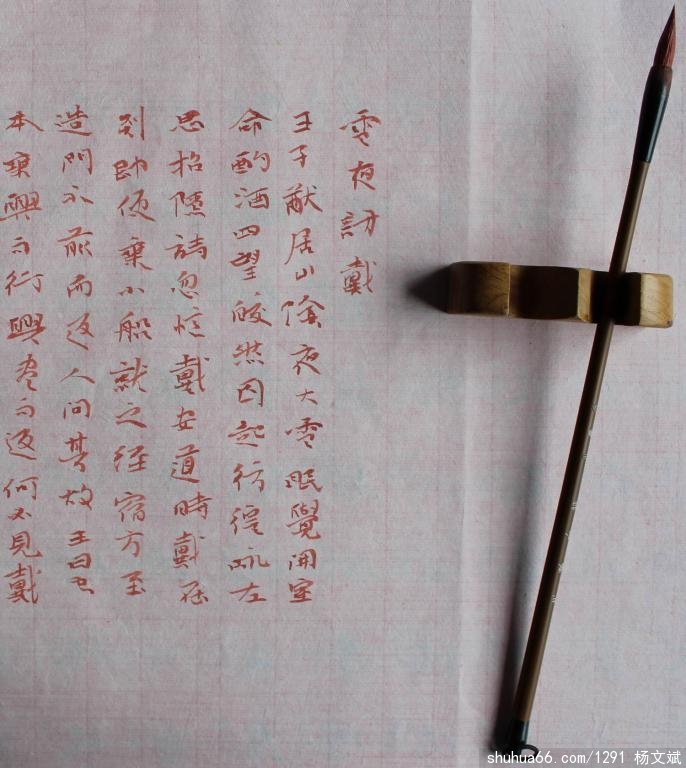 雪夜訪戴
王子猷居山陰夜大雪眠覺開室
命酌酒四望皎然因起彷徨詠左
思招隱詩忽憶戴安道時戴在
剡即便乘小船就之經宿方至
造門不前而返人問其故王曰吾
本乘興而行興盡而返何必見戴
shuhua66.com/1291 杨文斌